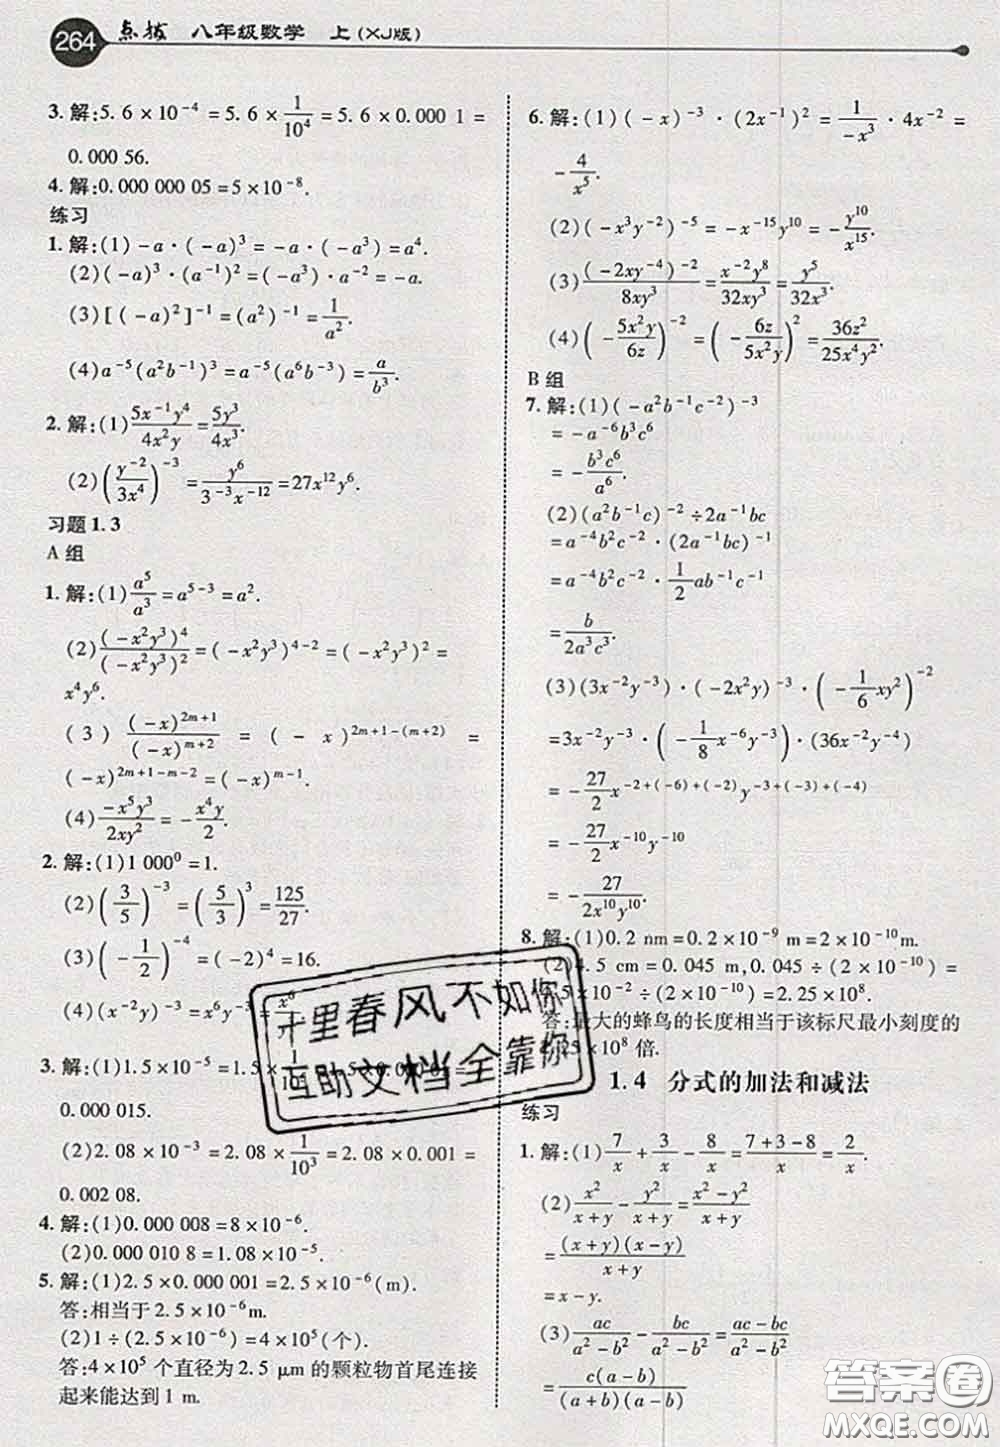 264 点拨 八年级数学 上(XJ版)
3. 解:5.6×10⁻⁴=5.6×1/10⁴=5.6×0.000 1=
0.000 56.
4. 解:0.000 000 05=5×10⁻⁸.
练习
1. 解:(1)-a·(-a)³=-a·(-a³)=a⁴.
(2)(-a)³·(a⁻¹)²=(-a³)·a⁻²=-a.
(3)[(-a)²]⁻¹=(a²)⁻¹=1/a².
(4)a⁻⁵(a²b⁻¹)³=a⁻⁵(a⁶b⁻³)=a/b³.
2. 解:(1)5x⁻¹y⁴/4x²y=5y³/4x³.
(2)(y⁻²/3x⁴)⁻³=y⁶/3⁻³x⁻¹²=27x¹²y⁶.
习题1.3
A组
1. 解:(1)a⁵/a³=a⁵⁻³=a².
(2)(-x²y³)⁴/(-x²y³)²=(-x²y³)⁴⁻²=(-x²y³)²=
x⁴y⁶.
(3)(-x)²ᵐ⁺¹/(-x)ᵐ⁺²=(-x)²ᵐ⁺¹⁻⁽ᵐ⁺²⁾=
(-x)²ᵐ⁺¹⁻ᵐ⁻²=(-x)ᵐ⁻¹.
(4)-x⁵y³/2xy²=-x⁴y/2.
2. 解:(1)1 000⁰=1.
(2)(3/5)⁻³=(5/3)³=125/27.
(3)(-1/2)⁻⁴=(-2)⁴=16.
(4)(x⁻²y)⁻³=x⁶y⁻³=x⁶
3. 解:(1)1.5×10⁻⁵=1.5×1/10⁵=1.5×0.000 01=
0.000 015.
(2)2.08×10⁻³=2.08×1/10³=2.08×0.001=
0.002 08.
4. 解:(1)0.000 008=8×10⁻⁶.
(2)0.000 010 8=1.08×10⁻⁵.
5. 解:(1)2.5×0.000 001=2.5×10⁻⁶(m).
答:相当于2.5×10⁻⁶m.
(2)1÷(2.5×10⁻⁶)=4×10⁵(个).
答:4×10⁵个直径为2.5 μm的颗粒物首尾连接
起来能达到1 m.
6. 解:(1)(-x)⁻³·(2x⁻¹)²=1/-x³·4x⁻²=
-4/x⁵.
(2)(-x³y⁻²)⁻⁵=-x⁻¹⁵y¹⁰=-y¹⁰/x¹⁵.
(3)(-2xy⁻⁴)⁻²/8xy³=x⁻²y⁸/32xy³=y⁵/32x³.
(4)(-5x²y/6z)⁻²=(-6z/5x²y)²=36z²/25x⁴y².
B组
7. 解:(1)(-a²b⁻¹c⁻²)⁻³
=-a⁻⁶b³c⁶
=-b³c⁶/a⁶.
(2)(a²b⁻¹c)⁻²÷2a⁻¹bc
=a⁻⁴b²c⁻²·(2a⁻¹bc)⁻¹
=a⁻⁴b²c⁻²·1/2ab⁻¹c⁻¹
=b/2a³c³.
(3)(3x⁻²y⁻³)·(-2x²y)⁻³·(-1/6xy²)⁻²
=3x⁻²y⁻³·(-1/8x⁻⁶y⁻³)·(36x⁻²y⁻⁴)
=-27/2x⁻²⁺⁽⁻⁶⁾⁺⁽⁻²⁾y⁻³⁺⁽⁻³⁾⁺⁽⁻⁴⁾
=-27/2x⁻¹⁰y⁻¹⁰
=-27/2x¹⁰y¹⁰.
8. 解:(1)0.2 nm=0.2×10⁻⁹ m=2×10⁻¹⁰m.
(2)4.5 cm=0.045 m,0.045÷(2×10⁻¹⁰)=
4.5×10⁻²÷(2×10⁻¹⁰)=2.25×10⁸.
答:最大的蜂鸟的长度相当于该标尺最小刻度的
2.25×10⁸倍.
1.4 分式的加法和减法
练习
1. 解:(1)7/x+3/x-8/x=7+3-8/x=2/x.
(2)x²/x+y-y²/x+y=x²-y²/x+y
=(x+y)(x-y)/x+y
=x-y.
(3)ac/a²-b²-bc/a²-b²=ac-bc/a²-b²
=c(a-b)/(a+b)(a-b)
十里春风不如你
互助文档全靠你
答案圈
MXQE.COM